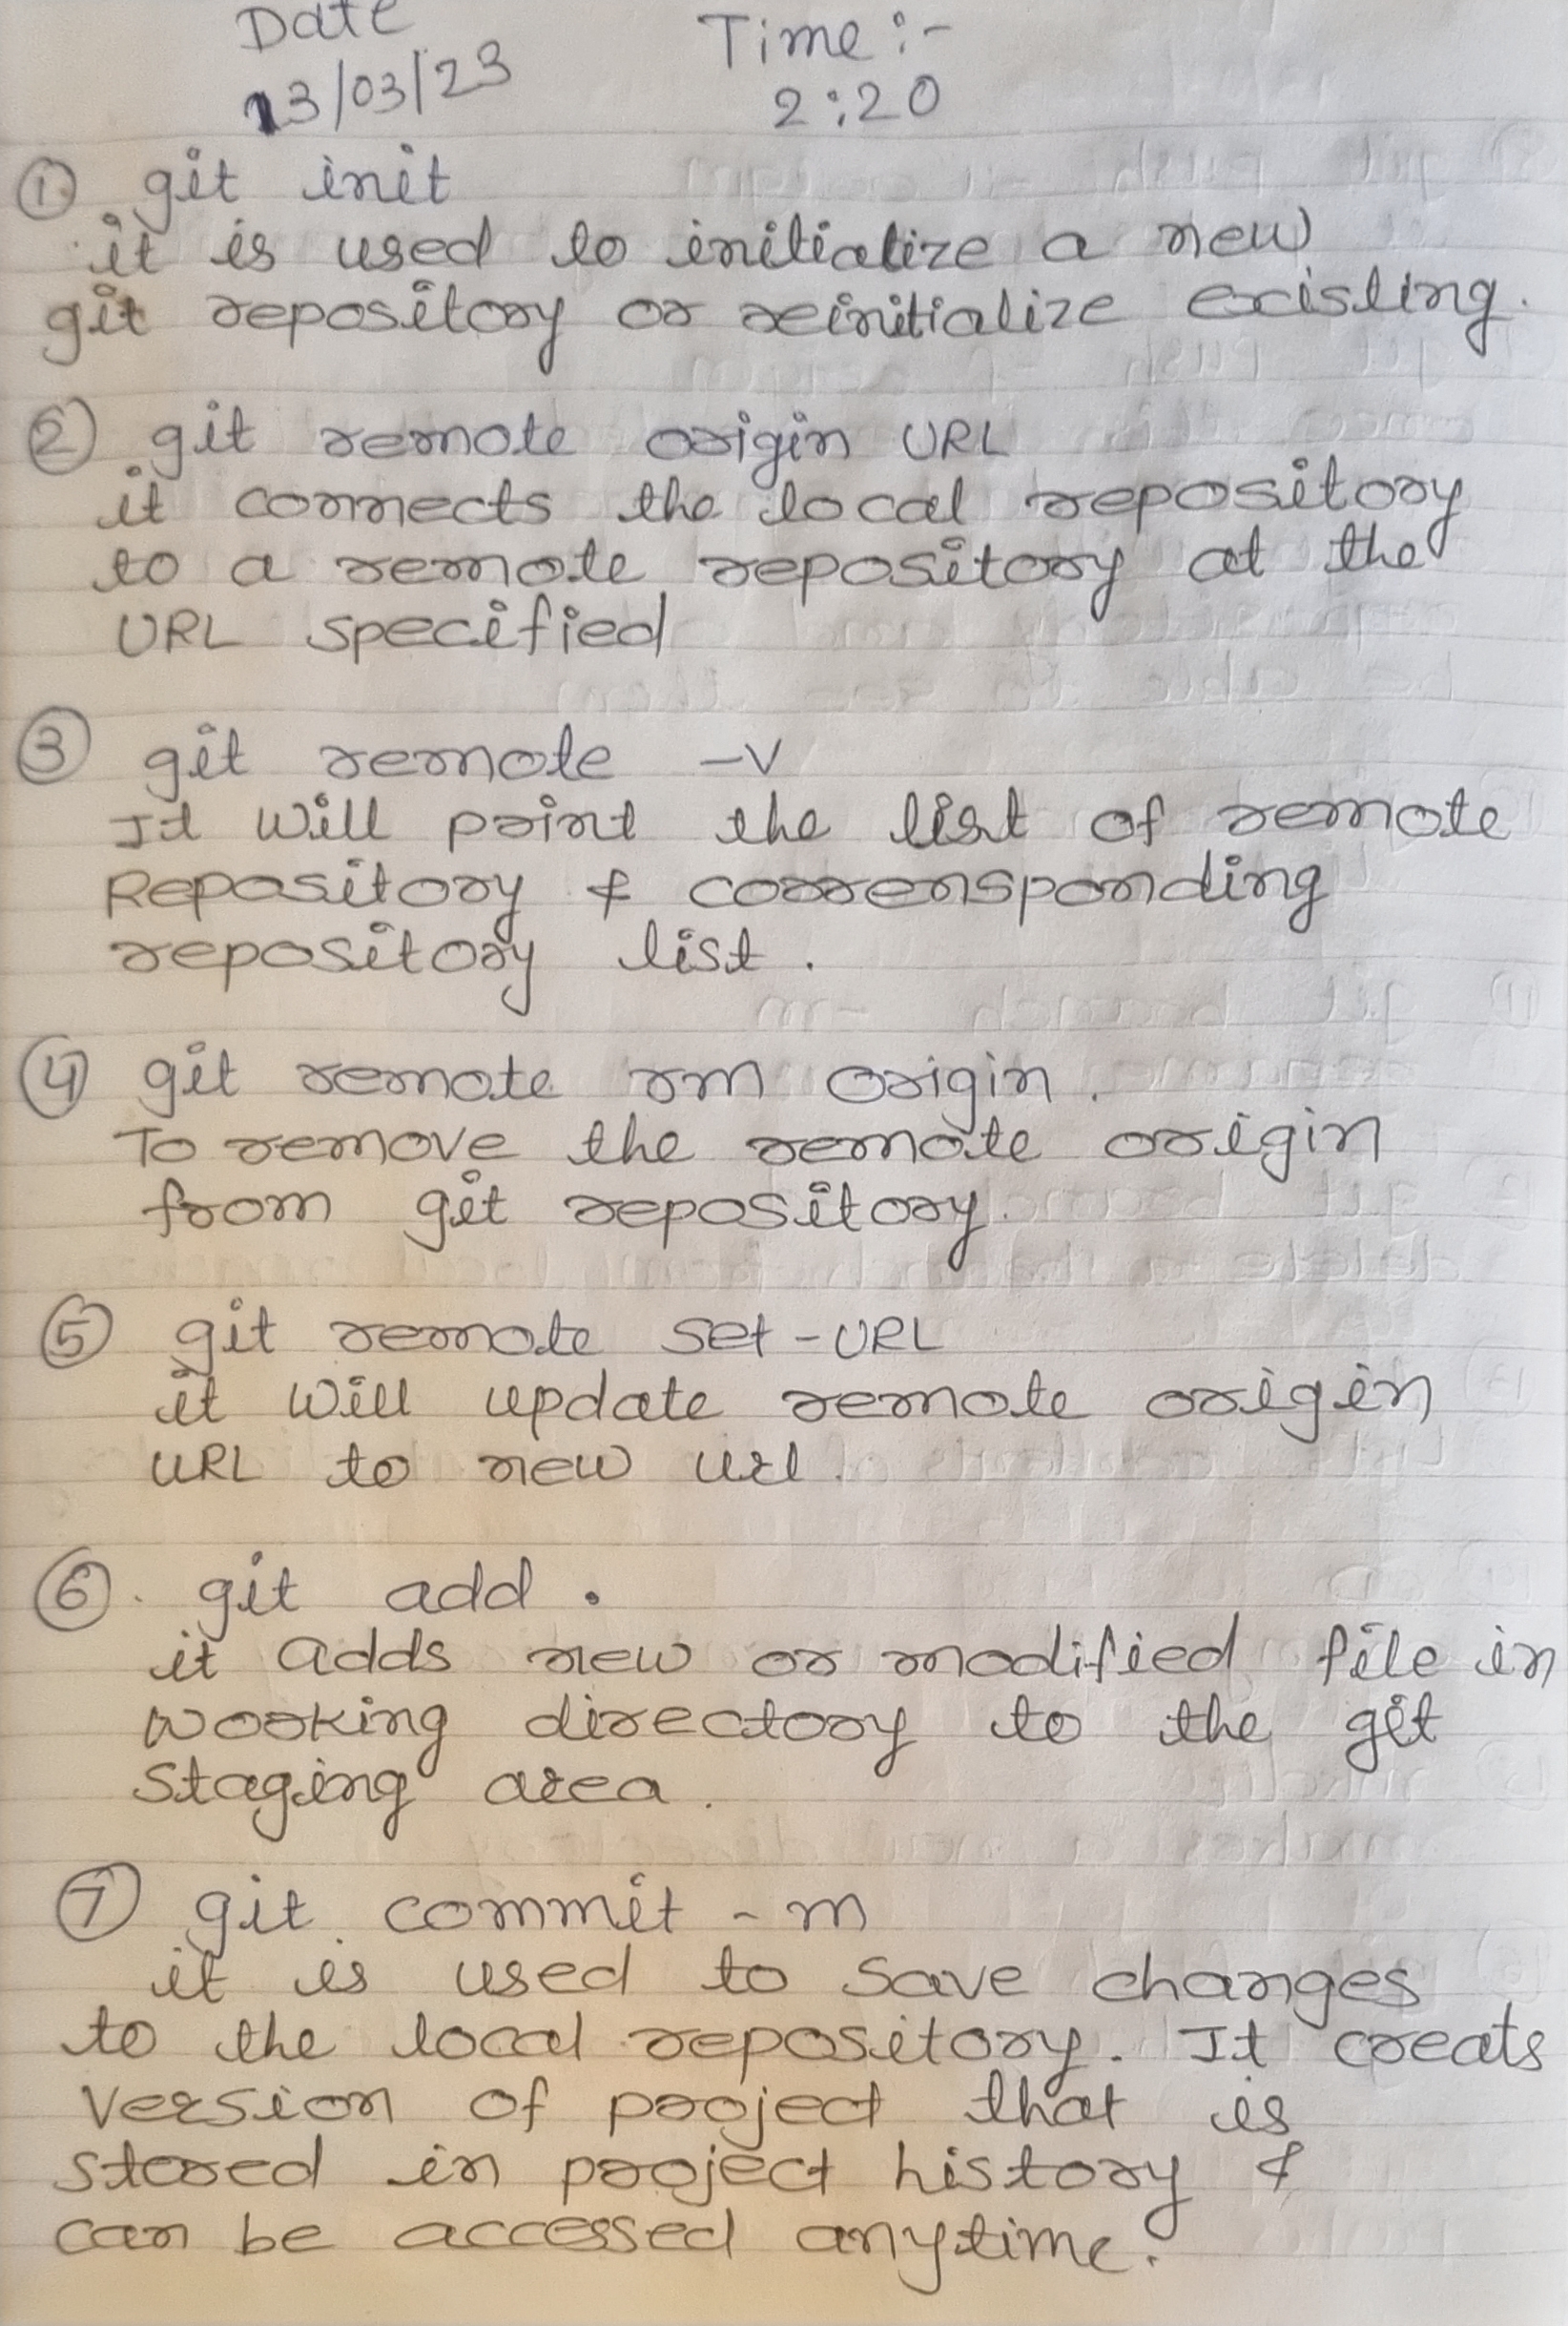 Date Time :-
13/03/23 2:20
① git init
it is used to initialize a new
git repository or reinitialize existing.
② git remote origin URL
it connects the local repository
to a remote repository at the
URL specified
③ git remote -v
It will print the list of remote
Repository & corrensponding
repository list.
④ git remote rm origin.
To remove the remote origin
from git repository.
⑤ git remote set-URL
it will update remote origin
URL to new url.
⑥. git add .
it adds new or modified file in
working directory to the git
staging area.
⑦ git commit -m
it is used to save changes
to the local repository. It creats
version of project that is
stored in project history &
can be accessed anytime.